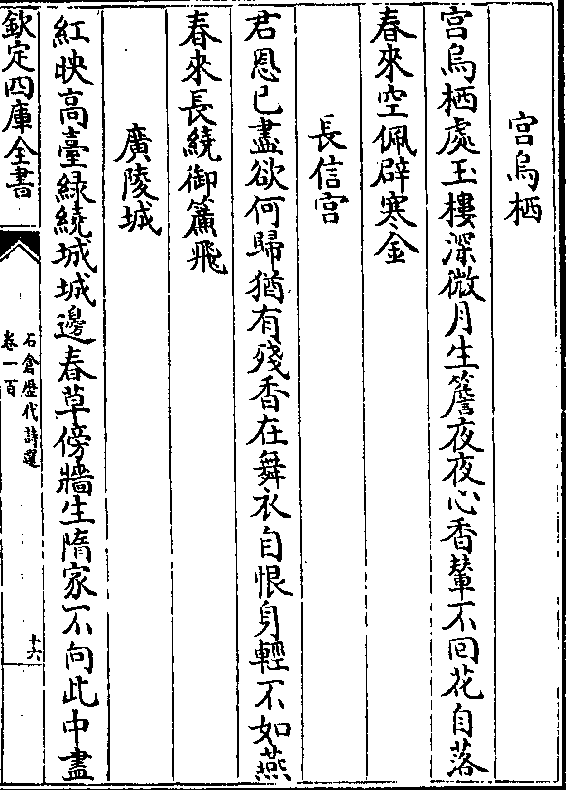 宫烏栖
宫烏栖處玉樓深微月生簷夜夜心香輦不回花自落
春來空佩辟寒金
長信宫
君恩已盡欲何歸猶有殘香在舞衣自恨身輕不如燕
春來長繞御簾飛
廣陵城
紅映高臺緑繞城城邊春草傍牆生隋家不向此中盡
欽定四庫全書
石倉歴代詩選
卷一百
十六